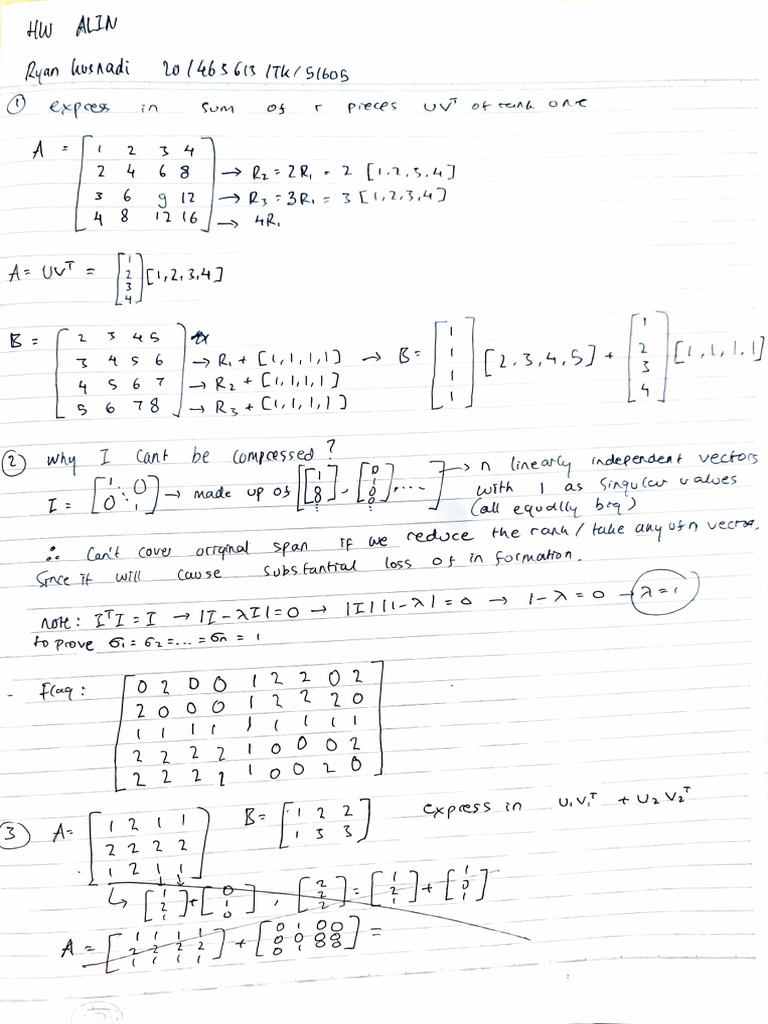 HW ALIN
Ryan Kusnadi 20/463613/TK/51605
① express in sum of r pieces UVᵀ of rank one
A = [1 2 3 4
2 4 6 8 → R₂ = 2R₁ = 2 [1,2,3,4]
3 6 9 12 → R₃ = 3R₁ = 3 [1,2,3,4]
4 8 12 16] → 4R₁
A = UVᵀ = [1 2 3 4] [1,2,3,4]
B = [2 3 4 5
3 4 5 6 → R₁ + [1,1,1,1] → B = [1 1 1 1] [2,3,4,5] + [1 2 3 4] [1,1,1,1]
4 5 6 7 → R₂ + [1,1,1,1]
5 6 7 8] → R₃ + [1,1,1,1]
② why I cant be compressed?
I = [1 ⋱ 0 0 1] → made up of [[1 1 8 ⋮], [0 1 0 0 ⋮], ....] → n linearly independent vectors
with 1 as singular values
(all equally big)
∴ Can't cover original span if we reduce the rank / take any of n vector,
Since it will cause substantial loss of in formation.
note: IᵀI = I → |I - λI| = 0 → |I||1 - λ| = 0 → 1 - λ = 0 → λ = 1
to prove σ₁ = σ₂ = ... = σn = 1
- Flag: [0 2 0 0 1 2 2 0 2
2 0 0 0 1 2 2 2 0
1 1 1 1 1 1 1 1 1
2 2 2 2 1 0 0 0 2
2 2 2 2 1 0 0 2 0]
③ A = [1 2 1 1 B = [1 2 2 express in U₁V₁ᵀ + U₂V₂ᵀ
2 2 2 2 1 3 3]
1 2 1 1]
↳ [1 2 1] + [0 1 0], [2 2 2] = [1 2 1] + [1 0 1]
A = [1 1 1 1
2 2 2 2
1 1 1 1] + [0 1 0 0
0 0 0 0
0 1 0 0] =